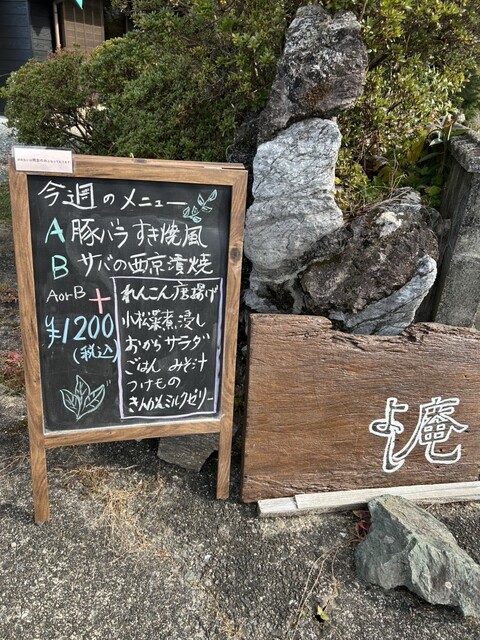 今週のメニュー
A 豚バラすき焼風
B サバの西京漬焼
AorB +
¥1200
(税込)
れんこん唐揚げ
小松菜煮浸し
おからサラダ
ごはん みそ汁
つけもの
きんかんミルクゼリー
よし庵